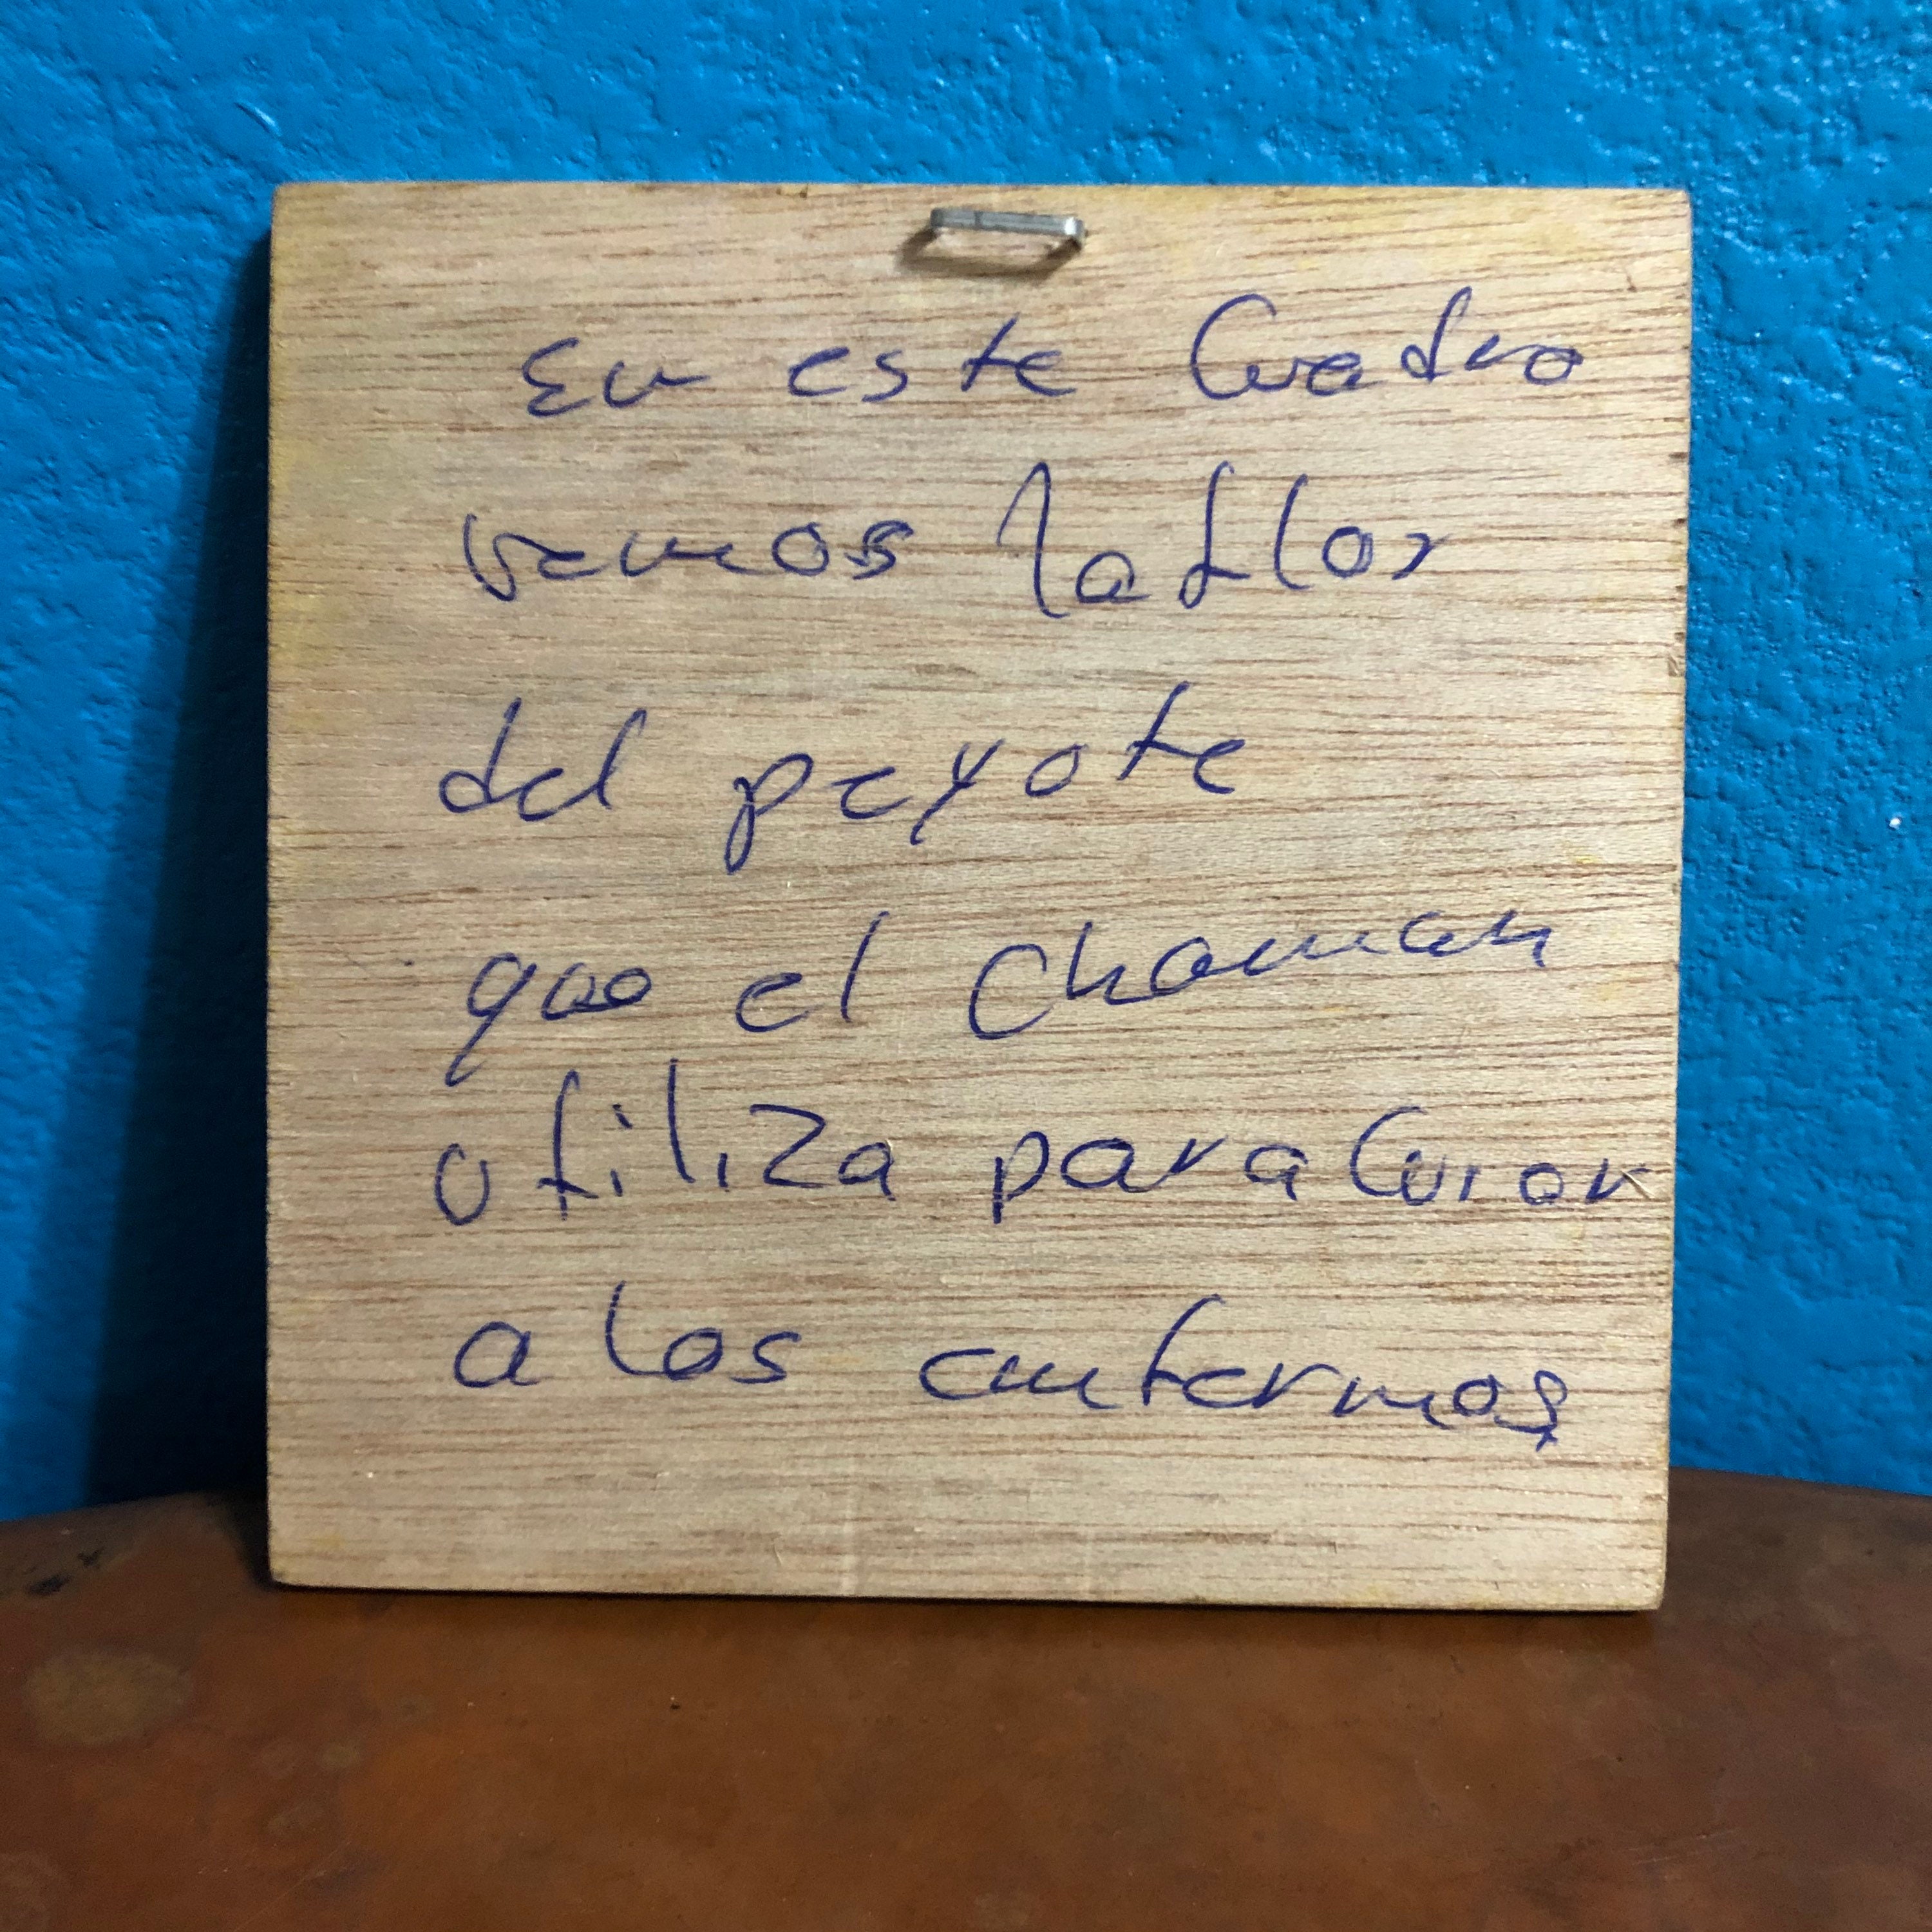 En este Cuadro
vemos la flor
del peyote
que el chaman
utiliza para Curar
a los enfermos